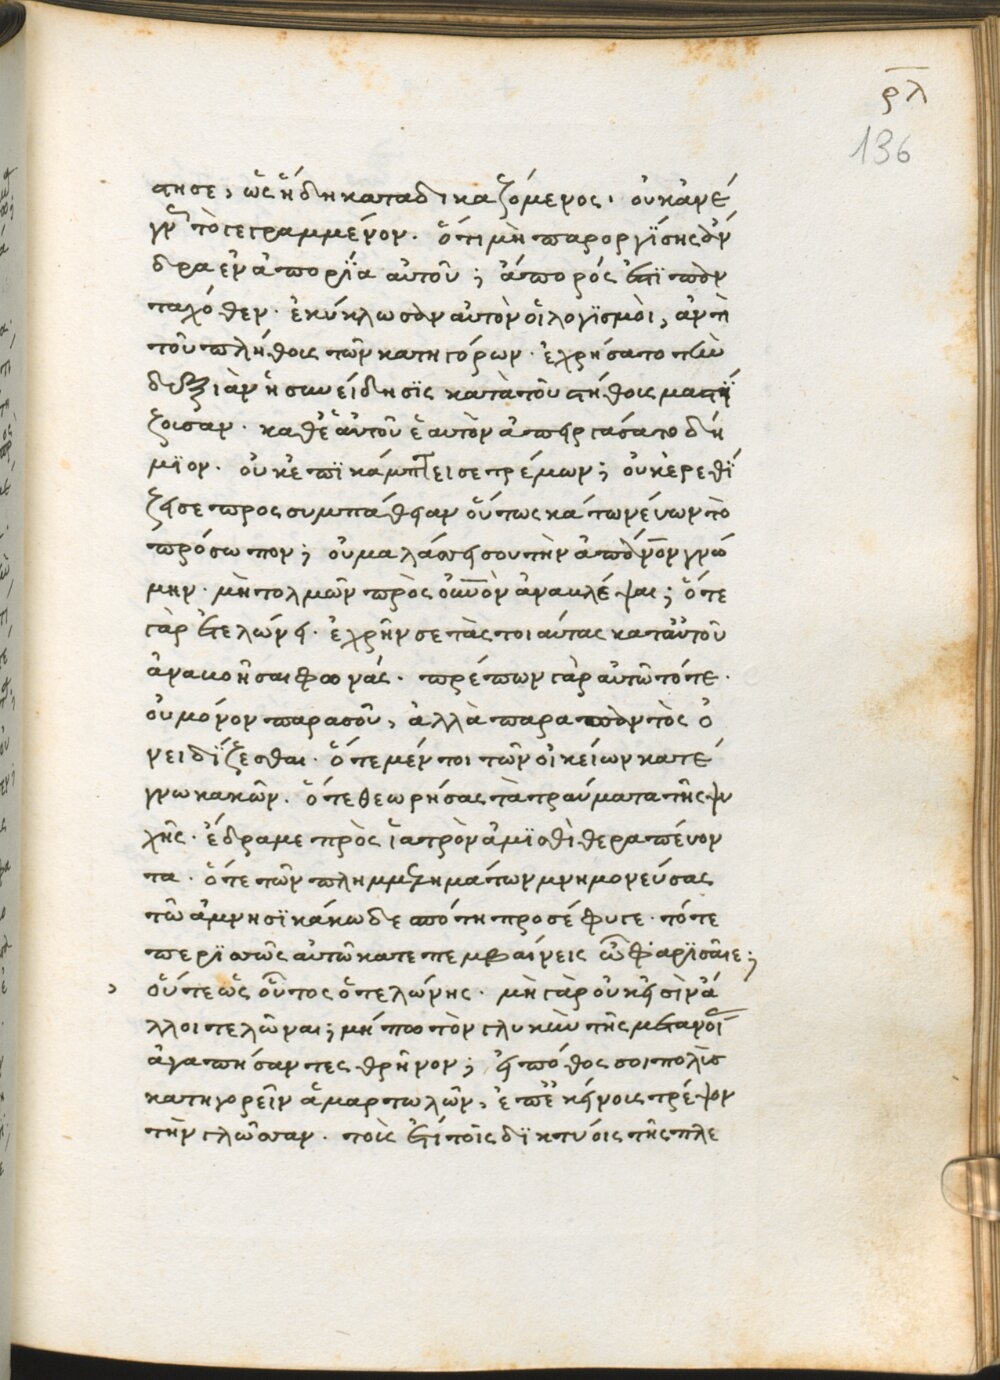 ρλ
136
στησε, ὡς ἤδη καταδικαζόμενος. οὐκ ἀνέ
γνως τὸ γεγραμμένον. ὅτι μὴ παροργίσης ἄν
δρα ἐν ἀπορία αὐτοῦ; ἄπορός ἐστι παν
ταχόθεν. ἐκύκλωσαν αὐτὸν οἱ λογϊσμοὶ, ἀντὶ
τοῦ πλήθους τῶν κατηγόρων. ἐχρήσατο τὴν
δεξιὰν ἡ συνείδησϊς κατὰ τοῦ στήθους μαστί
ζουσαν. καθ' ἑαυτοῦ ἑαυτὸν ἀπειργάσατο δή
μϊον. οὐκ ἐπϊκάμπτει σε τρέμων; οὐκ ἐρεθί
ζει σε προς συμπάθειαν οὕτως κάτω νεύων τὸ
πρόσωπον; οὐ μαλάσσει σου τὴν ἀπάνθρωπον γνώ
μην. μὴ τολμῶν πρὸς οὐρανὸν ἀναβλέψαι; ὅτε
γὰρ ἐτελώνει. ἐχρῆν σε τὰς τοιαύτας κατ' αὐτοῦ
ἀνακινῆσαι φωνάς. πρέπων γὰρ αὐτῶ τότε.
οὐ μόνον παρα σοῦ, ἀλλὰ παρα παντὸς ὀ
νειδίζεσθαι. ὅτε μέντοι τῶν οἰκείων κατέ
γνω κακῶν. ὅτε θεωρήσας τὰ τραύματα τῆς ψυ
χῆς. ἔδραμε πρὸς ἰατρὸν ἀμϊσθὶ θεραπεύον
τα. ὅτε τῶν πλημμελημάτων μνημονεύσας
τῶ ἀμνησϊκάκω δεσπότη προσέφυγε. τότε
περϊσσῶς αὐτῶ κατεπεμβαίνεις ὦ φαρϊσαῖε;
οὔτε ὡς οὗτος ὁ τελώνης. μὴ γὰρ οὐκ εἰσὶν ἄ
λλοι τελῶναι; μήπω τὸν γλυκὺν τῆς μετανοίας
ἀγαπήσαντες θρῆνον; εἰ πόθος σοι πολὺς
κατηγορεῖν ἁμαρτωλῶν, ἐπ' ἐκείνοις τρέψον
τὴν γλῶσσαν. τοῖς ἔτι τοῖς δϊκτύοις τῆς πλε